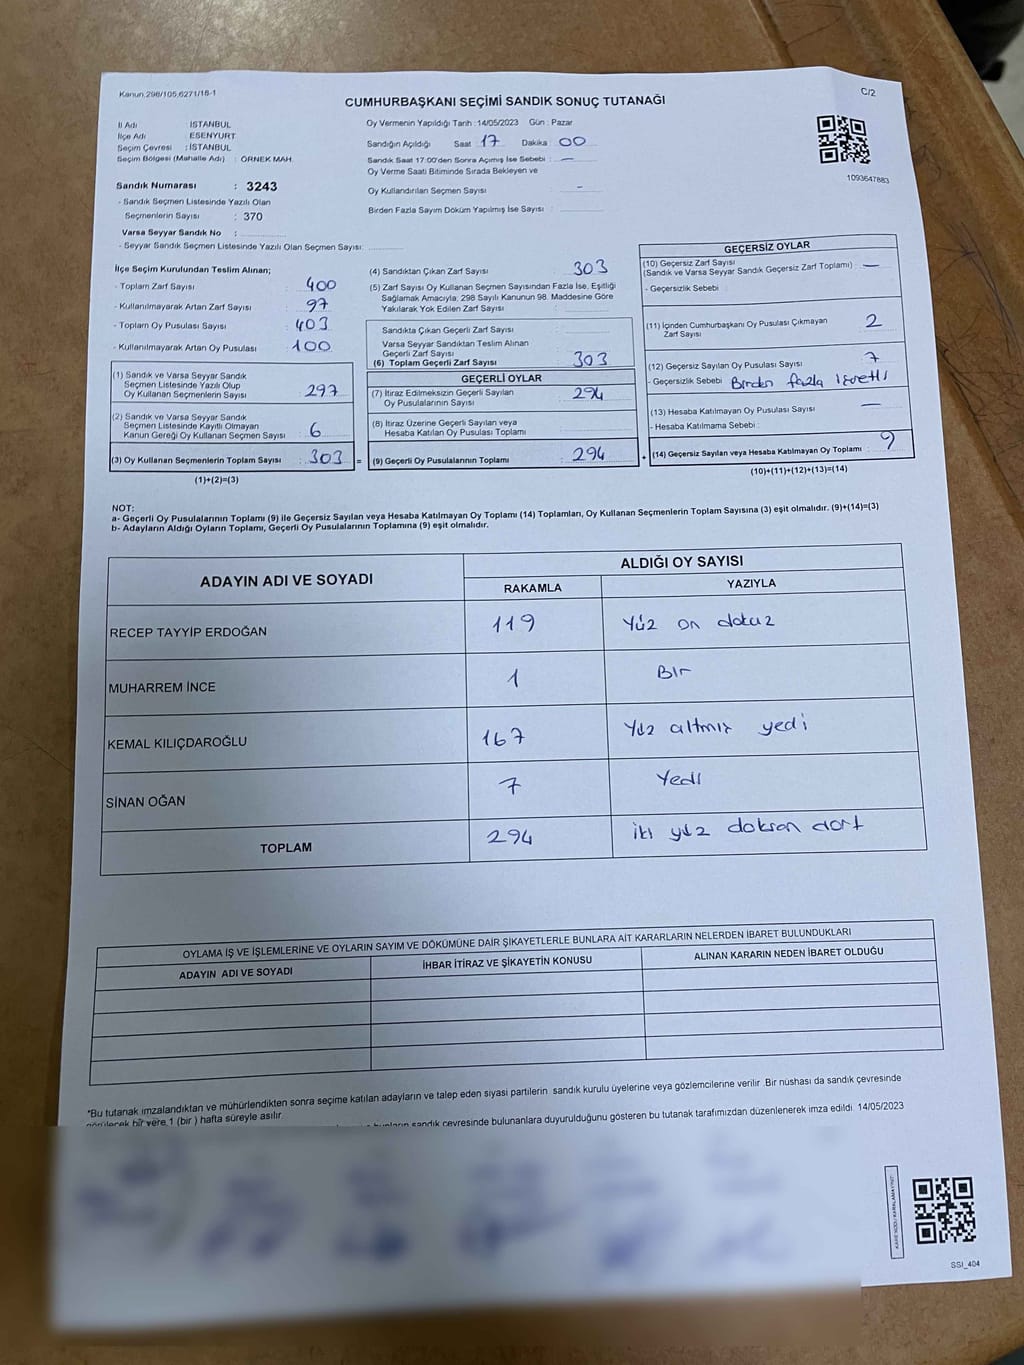 Kanun.298/105,6271/18-1
CUMHURBAŞKANI SEÇİMİ SANDIK SONUÇ TUTANAĞI
C/2
İl Adı : İSTANBUL
İlçe Adı : ESENYURT
Seçim Çevresi : İSTANBUL
Seçim Bölgesi (Mahalle Adı) : ÖRNEK MAH.
Sandık Numarası : 3243
- Sandık Seçmen Listesinde Yazılı Olan
Seçmenlerin Sayısı : 370
Varsa Seyyar Sandık No :
- Seyyar Sandık Seçmen Listesinde Yazılı Olan Seçmen Sayısı:
Oy Vermenin Yapıldığı Tarih :14/05/2023 Gün : Pazar
Sandığın Açıldığı Saat 17 Dakika 00
Sandık Saat 17:00'den Sonra Açılmış İse Sebebi : —
Oy Verme Saati Bitiminde Sırada Bekleyen ve
Oy Kullandırılan Seçmen Sayısı -
Birden Fazla Sayım Döküm Yapılmış İse Sayısı :
1093647883
İlçe Seçim Kurulundan Teslim Alınan;
- Toplam Zarf Sayısı : 400
- Kullanılmayarak Artan Zarf Sayısı : 97
- Toplam Oy Pusulası Sayısı : 403
- Kullanılmayarak Artan Oy Pusulası : 100
(1) Sandık ve Varsa Seyyar Sandık
Seçmen Listesinde Yazılı Olup
Oy Kullanan Seçmenlerin Sayısı : 297
(2) Sandık ve Varsa Seyyar Sandık
Seçmen Listesinde Kayıtlı Olmayan
Kanun Gereği Oy Kullanan Seçmen Sayısı : 6
(3) Oy Kullanan Seçmenlerin Toplam Sayısı : 303 =
(1)+(2)=(3)
(4) Sandıktan Çıkan Zarf Sayısı : 303
(5) Zarf Sayısı Oy Kullanan Seçmen Sayısından Fazla İse, Eşitliği
Sağlamak Amacıyla; 298 Sayılı Kanunun 98. Maddesine Göre
Yakılarak Yok Edilen Zarf Sayısı :
Sandıkta Çıkan Geçerli Zarf Sayısı :
Varsa Seyyar Sandıktan Teslim Alınan
Geçerli Zarf Sayısı
(6) Toplam Geçerli Zarf Sayısı : 303
GEÇERLİ OYLAR
(7) İtiraz Edilmeksizin Geçerli Sayılan
Oy Pusulalarının Sayısı : 294
(8) İtiraz Üzerine Geçerli Sayılan veya
Hesaba Katılan Oy Pusulası Toplamı :
(9) Geçerli Oy Pusulalarının Toplamı : 294 +
GEÇERSİZ OYLAR
(10) Geçersiz Zarf Sayısı
(Sandık ve Varsa Seyyar Sandık Geçersiz Zarf Toplamı) : —
- Geçersizlik Sebebi :
(11) İçinden Cumhurbaşkanı Oy Pusulası Çıkmayan
Zarf Sayısı 2
(12) Geçersiz Sayılan Oy Pusulası Sayısı : 7
- Geçersizlik Sebebi : Birden fazla işaretli
(13) Hesaba Katılmayan Oy Pusulası Sayısı : —
- Hesaba Katılmama Sebebi :
(14) Geçersiz Sayılan veya Hesaba Katılmayan Oy Toplamı : 9
(10)+(11)+(12)+(13)=(14)
NOT:
a- Geçerli Oy Pusulalarının Toplamı (9) ile Geçersiz Sayılan veya Hesaba Katılmayan Oy Toplamı (14) Toplamları, Oy Kullanan Seçmenlerin Toplam Sayısına (3) eşit olmalıdır. (9)+(14)=(3)
b- Adayların Aldığı Oyların Toplamı, Geçerli Oy Pusulalarının Toplamına (9) eşit olmalıdır.
ADAYIN ADI VE SOYADI
ALDIĞI OY SAYISI
RAKAMLA YAZIYLA
RECEP TAYYİP ERDOĞAN 119 Yüz on dokuz
MUHARREM İNCE 1 Bir
KEMAL KILIÇDAROĞLU 167 Yüz altmış yedi
SİNAN OĞAN 7 Yedi
TOPLAM 294 iki yüz doksan dört
OYLAMA İŞ VE İŞLEMLERİNE VE OYLARIN SAYIM VE DÖKÜMÜNE DAİR ŞİKAYETLERLE BUNLARA AİT KARARLARIN NELERDEN İBARET BULUNDUKLARI
ADAYIN ADI VE SOYADI İHBAR İTİRAZ VE ŞİKAYETİN KONUSU ALINAN KARARIN NEDEN İBARET OLDUĞU
*Bu tutanak imzalandıktan ve mühürlendikten sonra seçime katılan adayların ve talep eden siyasi partilerin sandık kurulu üyelerine veya gözlemcilerine verilir. Bir nüshası da sandık çevresinde
görülecek bir yere 1 (bir) hafta süreyle asılır.
sandık çevresinde bulunanlara duyurulduğunu gösteren bu tutanak tarafımızdan düzenlenerek imza edildi. 14/05/2023
SSI_404